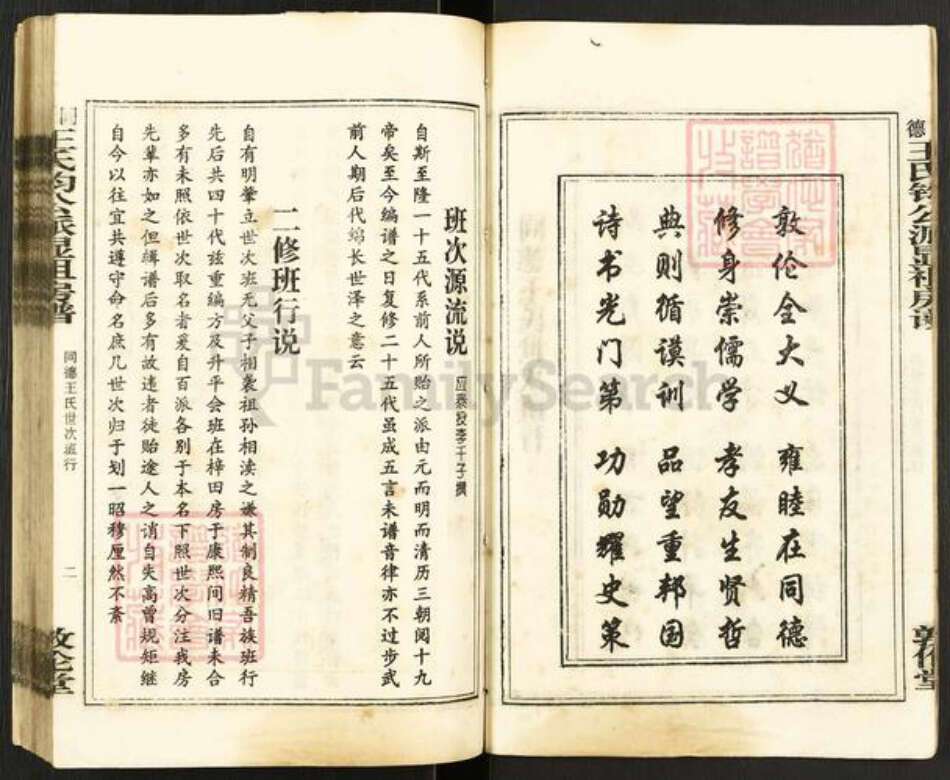 敦伦全大义 雍睦在同德
修身崇儒学 孝友生贤哲
典则循谟训 品望重邦国
诗书光门第 功勋耀史策
敦伦堂
班次源流说
自斯至隆一十五代系前人所贻之派由元而明而清历三朝阅十九
帝矣至今编谱之日复修二十五代虽成五言未谱音律亦不过步武
前人期后代绵长世泽之意云
二修班行说
自有明肇立世次班无父子相袭祖孙相渎之谦其制良精吾族班行
先后共四十代兹重编方及升平会班在梓田房于康熙间旧谱未合
多有未照依世次取名者爰自百派各别于本名下照世次分注我房
先辈亦如之但缉谱后多有故违者徒贻途人之诮自失高曾规矩继
自今以往宜共遵守命名庶几世次归于划一昭穆厘然不紊
同德王氏世次班行
二
敦伦堂
FamilySearch